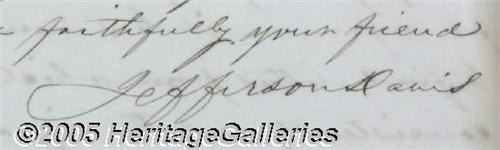 faithfully your friend
Jefferson Davis
©2005 HeritageGalleries